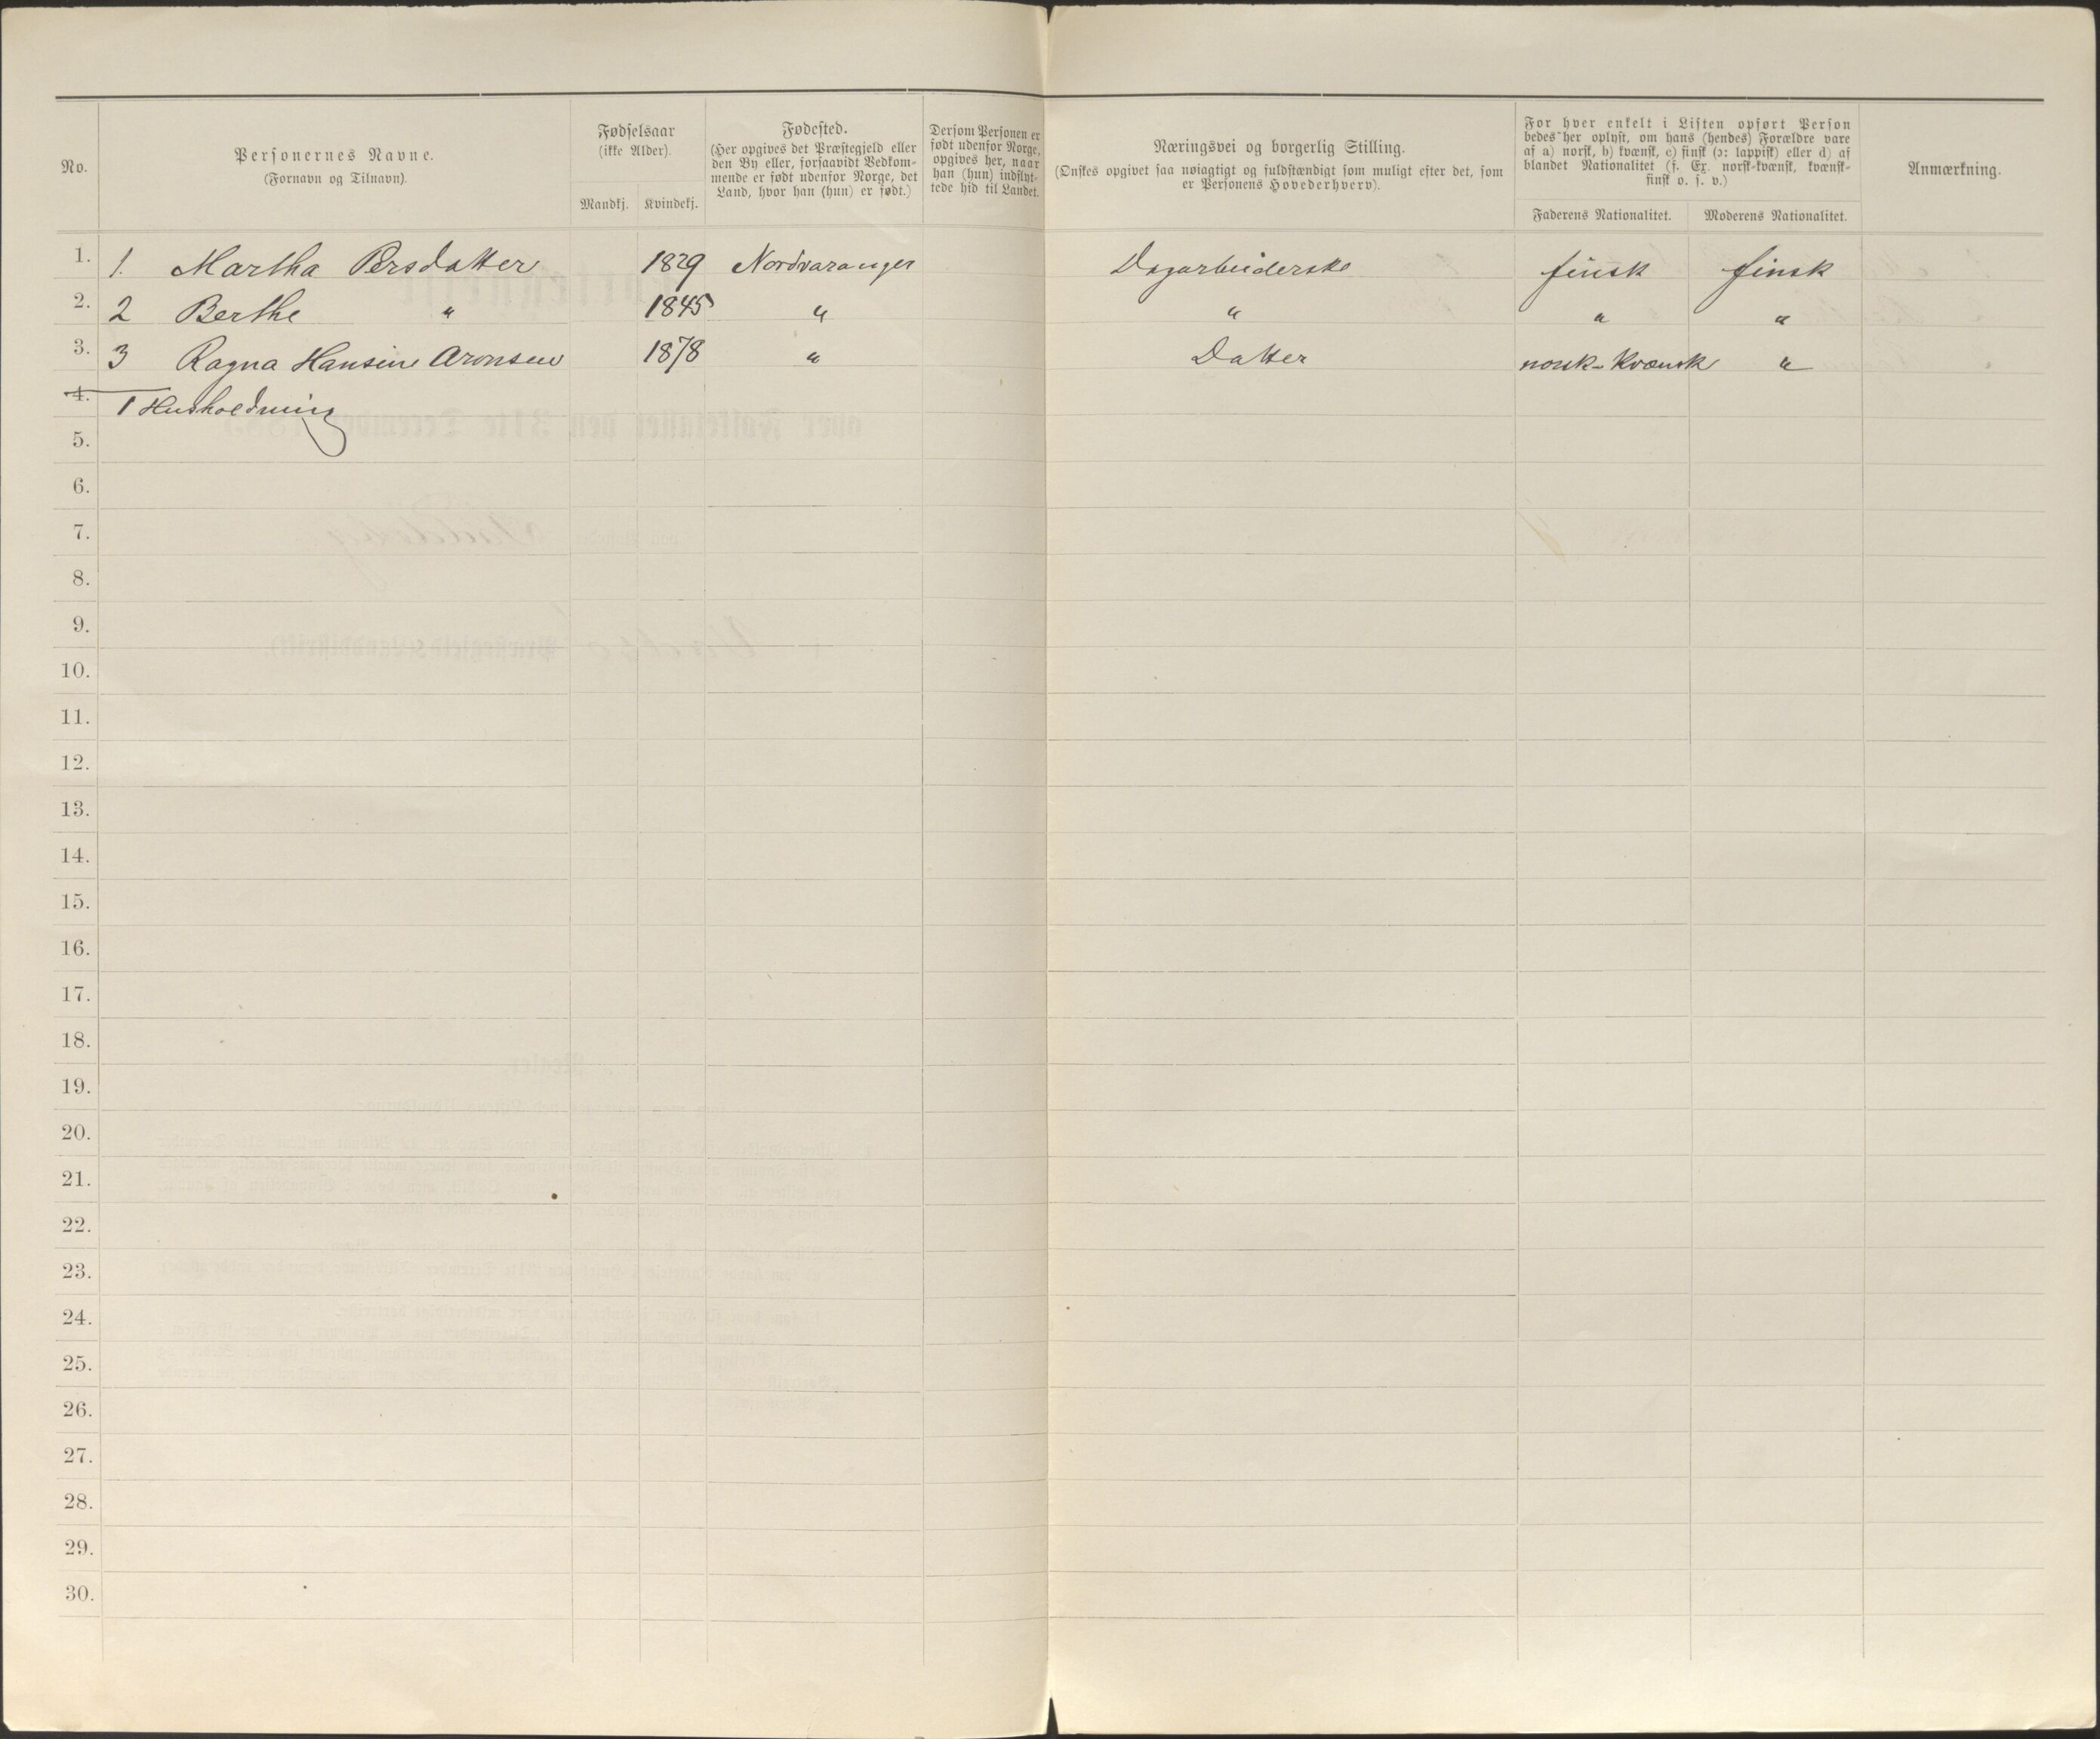 No.
Personernes Navne.
(Fornavn og Tilnavn).
Fødselsaar
(ikke Alder).
Mandkj. Kvindekj.
Fødested.
(Her opgives det Præstegjeld eller
den By eller, forsaavidt Vedkom-
mende er født udenfor Norge, det
Land, hvor han (hun) er født.)
Dersom Personen er
født udenfor Norge,
opgives her, naar
han (hun) indflyt-
tede hid til Landet.
Næringsvei og borgerlig Stilling.
(Ønskes opgivet saa nøiagtigt og fuldstændigt som muligt efter det, som
er Personens Hovederhverv).
For hver enkelt i Listen opført Person
bedes her oplyst, om hans (hendes) Forældre vare
af a) norsk, b) kvænsk, c) finsk (ɔ: lappisk) eller d) af
blandet Nationalitet (f. Ex. norsk-kvænsk, kvænsk-
finsk o. s. v.)
Faderens Nationalitet. Moderens Nationalitet.
Anmærkning.
1. 1. Martha Persdatter 1829 Nordvaranger Dagarbeiderske finsk finsk
2. 2 Berthe " 1845 " " " "
3. 3 Ragna Hansine Aronsen 1878 " Datter norsk-kvænsk "
4. 1 Husholdning
5.
6.
7.
8.
9.
10.
11.
12.
13.
14.
15.
16.
17.
18.
19.
20.
21.
22.
23.
24.
25.
26.
27.
28.
29.
30.